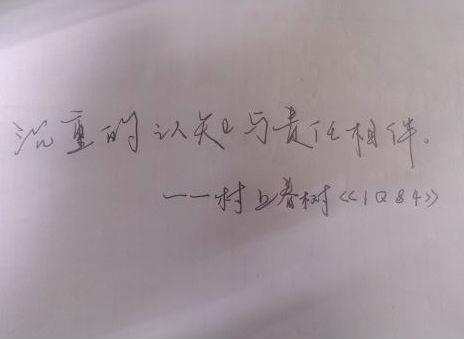 沉重的认知与责任相伴.
——村上春树《1Q84》